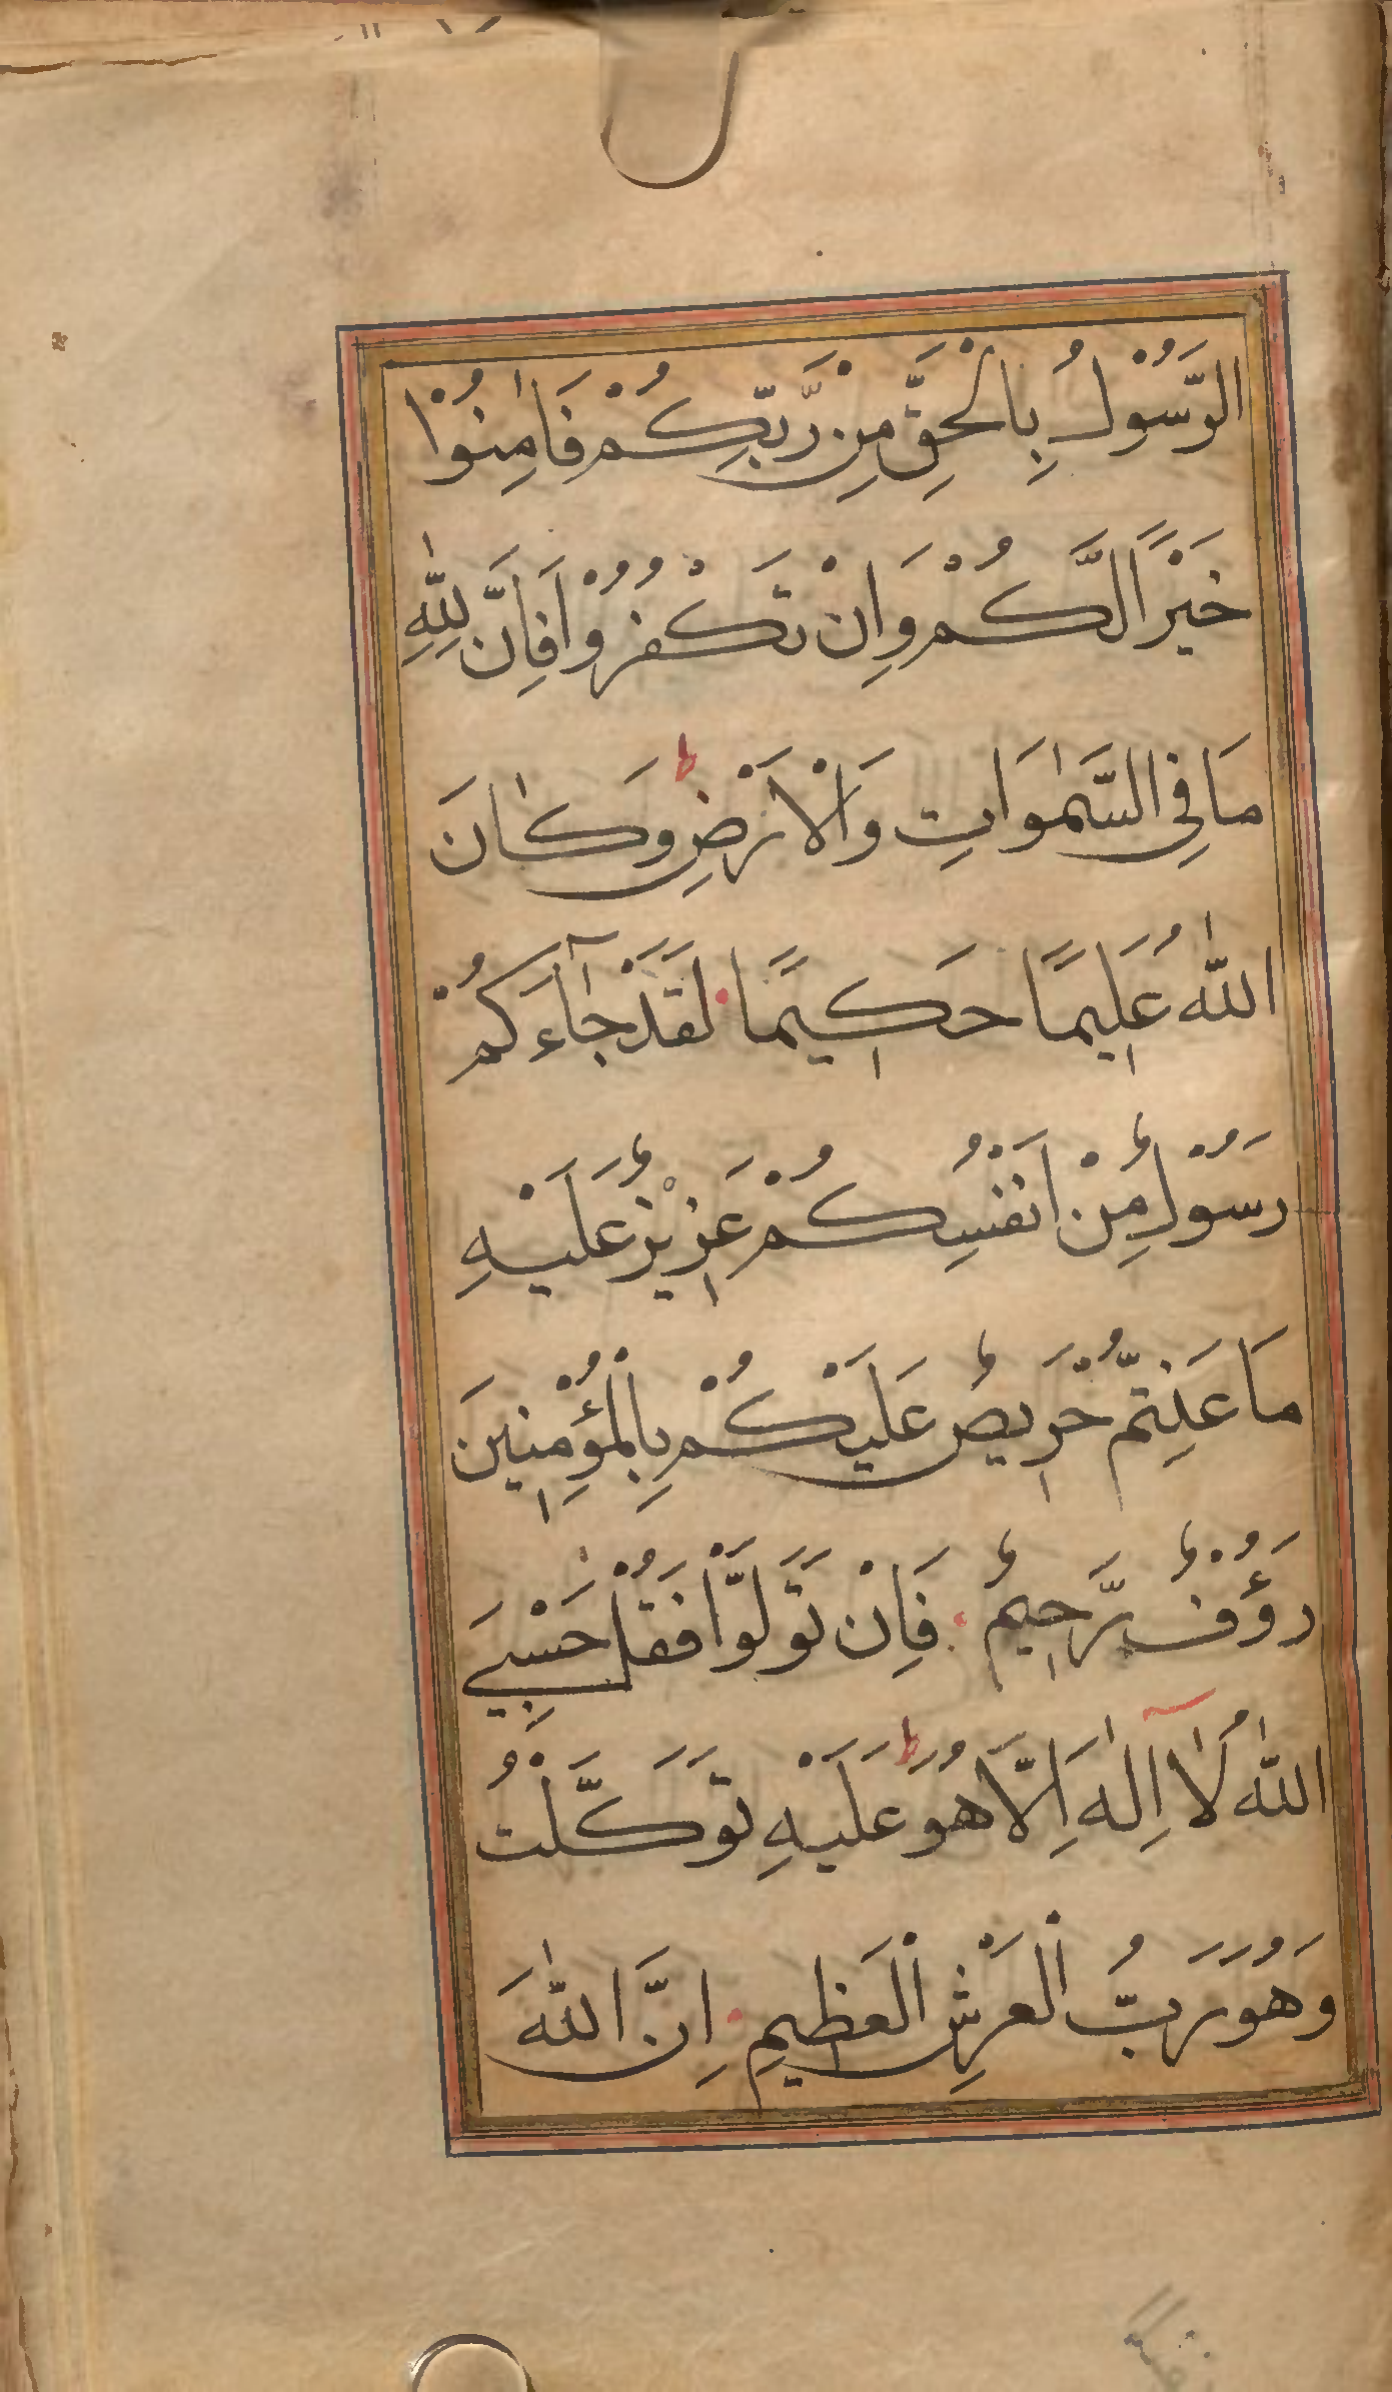 الرَّسُوْلُ بِالْحَقِّ مِنْ رَّبِّكُمْ فَاٰمِنُوْا
خَيْرًا لَّكُمْ وَاِنْ تَكْفُرُوْا فَاِنَّ لِلّٰهِ
مَا فِي السَّمٰوَاتِ وَالْاَرْضِ ط وَكَانَ
اللّٰهُ عَلِيمًا حَكِيمًا لَقَدْ جَآءَكُمْ
رَسُوْلٌ مِنْ اَنْفُسِكُمْ عَزِيْزٌ عَلَيْهِ
مَا عَنِتُّمْ حَرِيصٌ عَلَيْكُمْ بِالْمُؤْمِنِينَ
رَؤُفٌ رَّحِيمٌ فَاِنْ تَوَلَّوْا فَقُلْ حَسْبِيَ
اللّٰهُ لَآ اِلٰهَ اِلَّا هُوَ ط عَلَيْهِ تَوَكَّلْتُ
وَهُوَ رَبُّ الْعَرْشِ الْعَظِيمِ اِنَّ اللّٰهَ